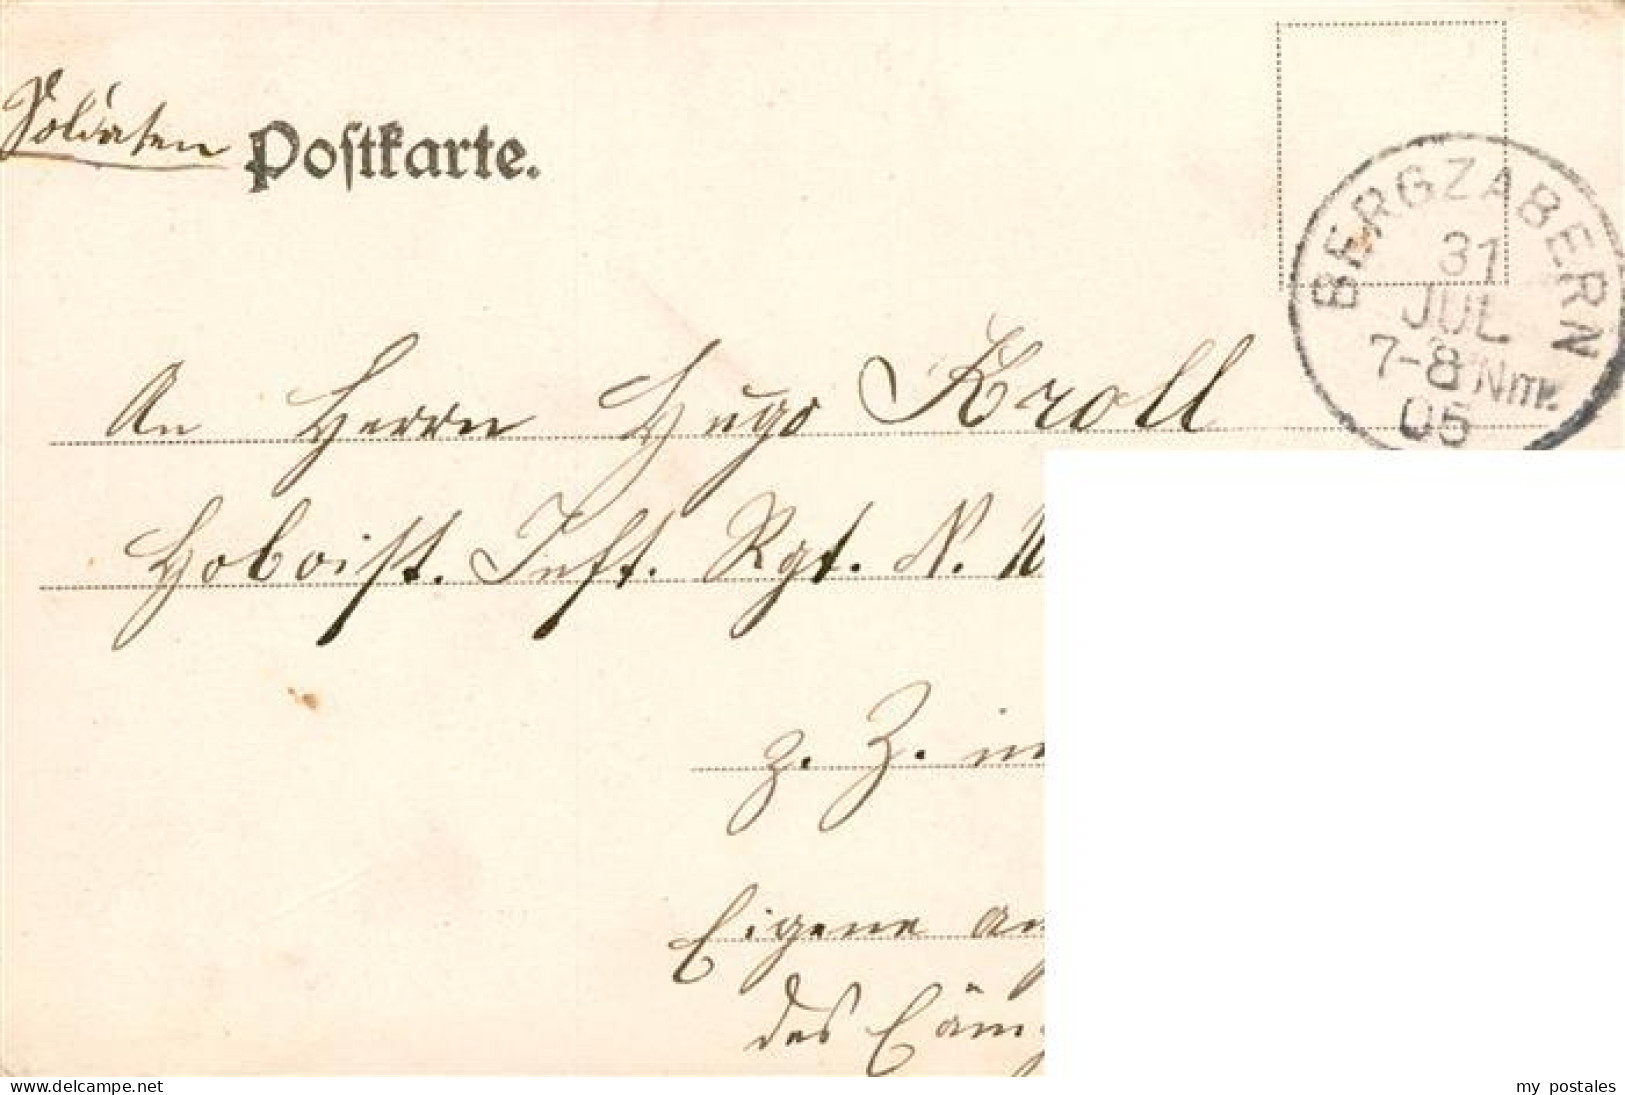 Soldaten Postkarte.
BERGZABERN
31
JUL
7-8 Nm.
05
An Herrn Hugo Kroll
Hoboist. Inft. Rgt. N.
z. Z. in
Eigene An
des
www.delcampe.net
my_postales